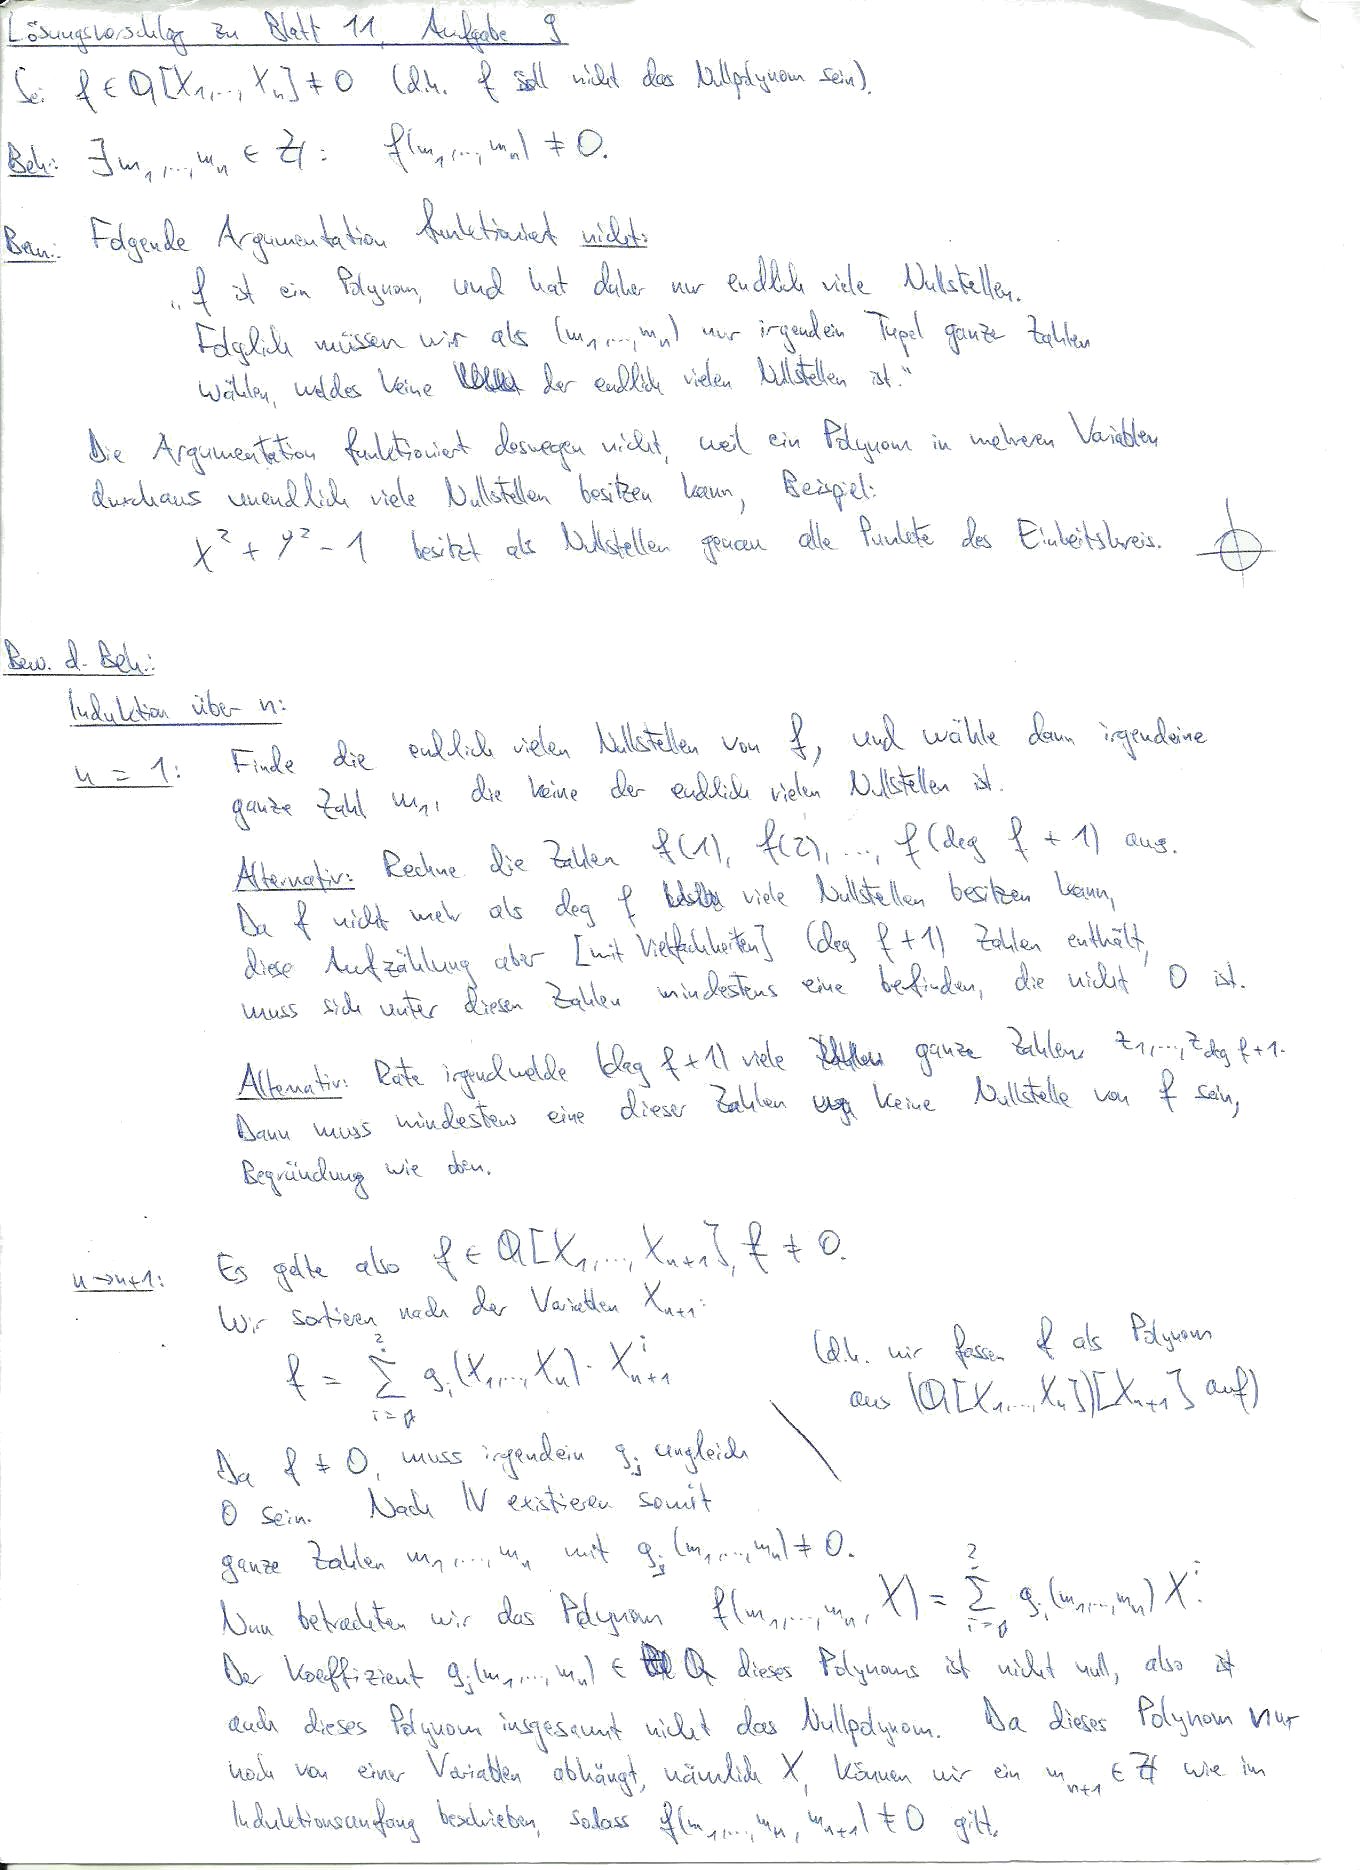 Lösungsvorschlag zu Blatt 11, Aufgabe 9
Sei f ∈ Q[X₁,…, Xₙ] ≠ 0 (d.h. f soll nicht das Nullpolynom sein).
Beh.: ∃ m₁,…,mₙ ∈ Z: f(m₁,…,mₙ) ≠ 0.
Bem.: Folgende Argumentation funktioniert nicht:
„f ist ein Polynom, und hat daher nur endlich viele Nullstellen.
Folglich müssen wir als (m₁,…,mₙ) nur irgendein Tupel ganze Zahlen
wählen, welches keine der endlich vielen Nullstellen ist."
Die Argumentation funktioniert deswegen nicht, weil ein Polynom in mehreren Variablen
durchaus unendlich viele Nullstellen besitzen kann, Beispiel:
X² + Y² − 1 besitzt als Nullstellen genau alle Punkte des Einheitskreis.
Bew. d. Beh.:
Induktion über n:
n = 1: Finde die endlich vielen Nullstellen von f, und wähle dann irgendeine
ganze Zahl m₁, die keine der endlich vielen Nullstellen ist.
Alternativ: Rechne die Zahlen f(1), f(2), …, f(deg f + 1) aus.
Da f nicht mehr als deg f viele Nullstellen besitzen kann,
diese Aufzählung aber [mit Vielfachheiten] (deg f + 1) Zahlen enthält,
muss sich unter diesen Zahlen mindestens eine befinden, die nicht 0 ist.
Alternativ: Rate irgendwelche (deg f + 1) viele ganze Zahlen z₁,…,z_{deg f + 1}.
Dann muss mindestens eine dieser Zahlen keine Nullstelle von f sein,
Begründung wie oben.
n→n+1: Es gelte also f ∈ Q[X₁,…, Xₙ₊₁], f ≠ 0.
Wir sortieren nach der Variablen Xₙ₊₁:
f = Σ_{i=0}^{?} gᵢ(X₁,…,Xₙ) · Xⁱₙ₊₁
(d.h. wir fassen f als Polynom
aus (Q[X₁,…,Xₙ])[Xₙ₊₁] auf)
Da f ≠ 0, muss irgendein gⱼ ungleich
0 sein. Nach IV existieren somit
ganze Zahlen m₁,…,mₙ mit gⱼ(m₁,…,mₙ) ≠ 0.
Nun betrachten wir das Polynom f(m₁,…,mₙ, X) = Σ_{i=0}^{?} gᵢ(m₁,…,mₙ) Xⁱ.
Der Koeffizient gⱼ(m₁,…,mₙ) ∈ Q dieses Polynoms ist nicht null, also ist
auch dieses Polynom insgesamt nicht das Nullpolynom. Da dieses Polynom nur
noch von einer Variablen abhängt, nämlich X, können wir ein mₙ₊₁ ∈ Z wie im
Induktionsanfang beschrieben, sodass f(m₁,…,mₙ, mₙ₊₁) ≠ 0 gilt.